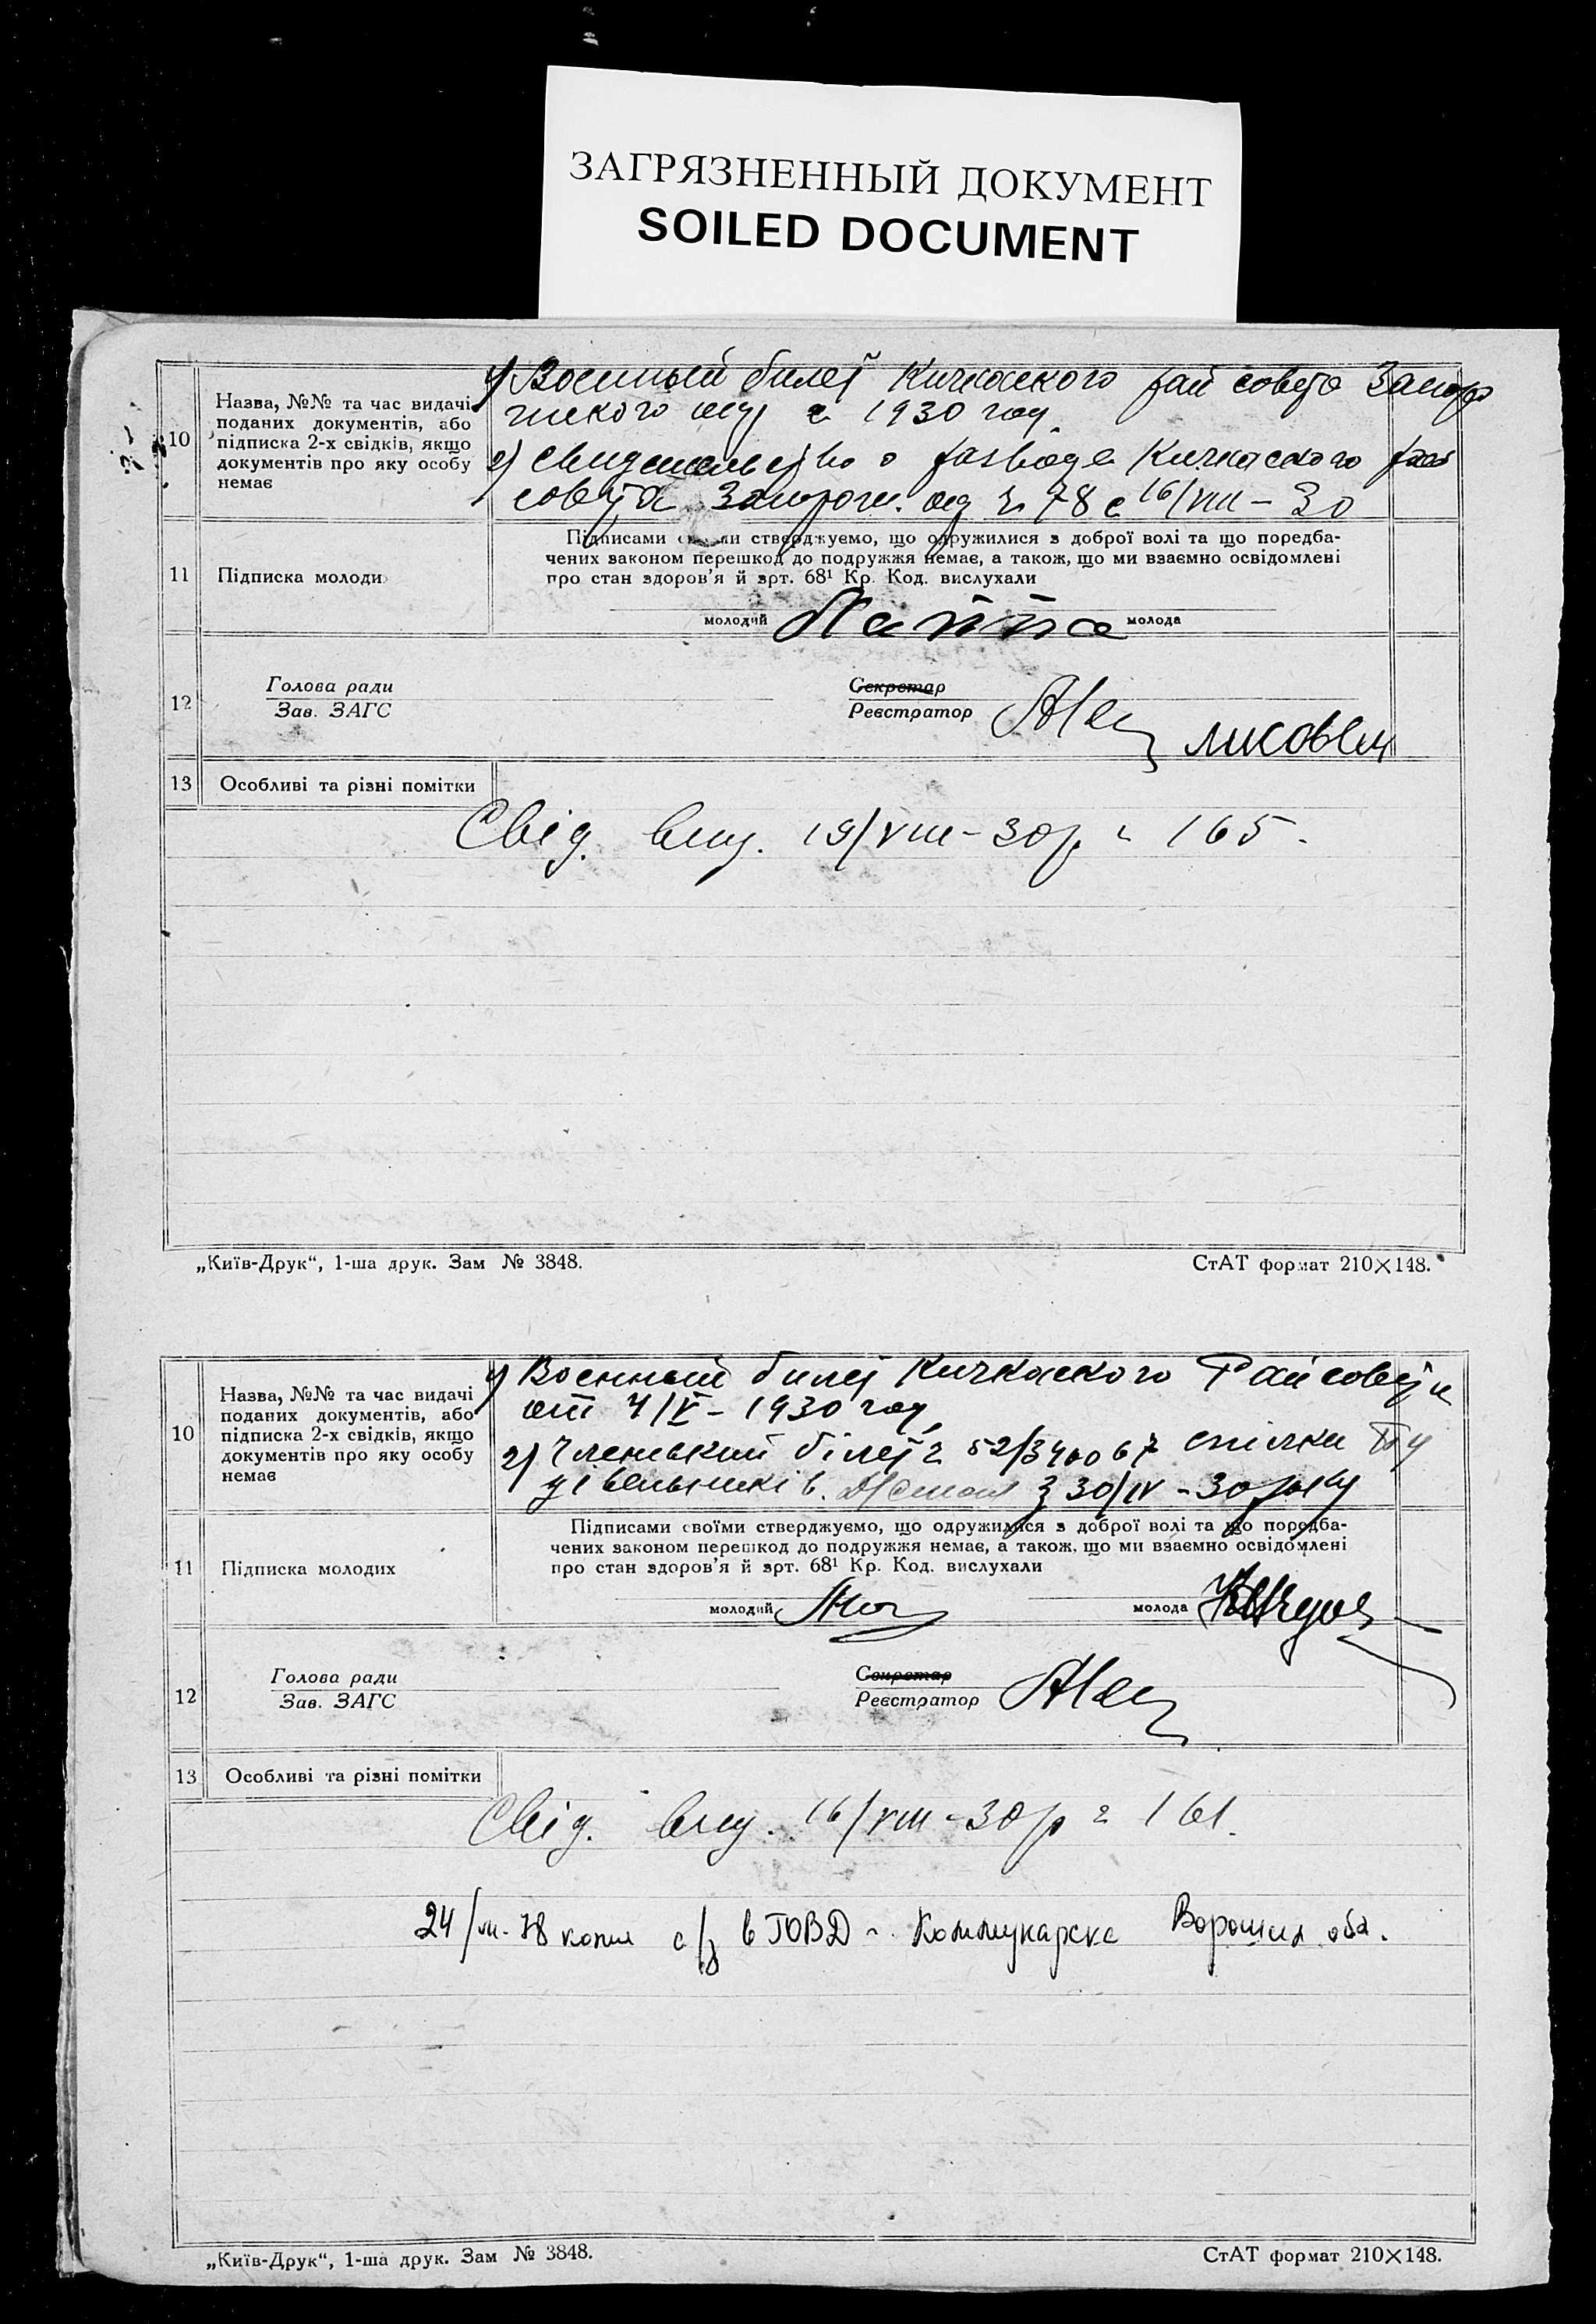 ЗАГРЯЗНЕННЫЙ ДОКУМЕНТ
SOILED DOCUMENT
10
Назва, №№ та час видачі
поданих документів, або
підписка 2-х свідків, якщо
документів про яку особу
немає
1) Военный билет Кичкаского рай совета Запоро
жского 1930 год
2) свидетельство о разводе Кичкаского рай
совета Запорож. 78 с 16/VIII – 30
11
Підписка молоди
Підписами ствєрджуємо, що одружилися з доброї волі та що поредба-
чених законом перешкод до подружжя немає, а також, що ми взаємно освідомлені
про стан здоров'я й арт. 68¹ Кр. Код. вислухали
молодий молода
12
Голова ради
Зав. ЗАГС
Секретар
Реєстратор
13
Особливі та різні помітки
Свід. вид. 19/VIII – 30 р. 165.
„Київ-Друк“, 1-ша друк. Зам № 3848.
СтАТ формат 210×148.
10
Назва, №№ та час видачі
поданих документів, або
підписка 2-х свідків, якщо
документів про яку особу
немає
1) Военный билет Кичкаского Райсовета
от 4/V – 1930 год,
2) Членський білет 52/340067 спілки Бу
дівельників. з 30/IV – 30 року
11
Підписка молодих
Підписами своїми ствєрджуємо, що одружилися з доброї волі та що поредба-
чених законом перешкод до подружжя немає, а також, що ми взаємно освідомлені
про стан здоров'я й арт. 68¹ Кр. Код. вислухали
молодий молода
12
Голова ради
Зав. ЗАГС
Секретар
Реєстратор
13
Особливі та різні помітки
Свід. вид. 16/VIII – 30 р 161.
24/ 78 копия а/з в ГОВД г. Коммунарска Ворошил обл.
„Київ-Друк“, 1-ша друк. Зам № 3848.
СтАТ формат 210×148.